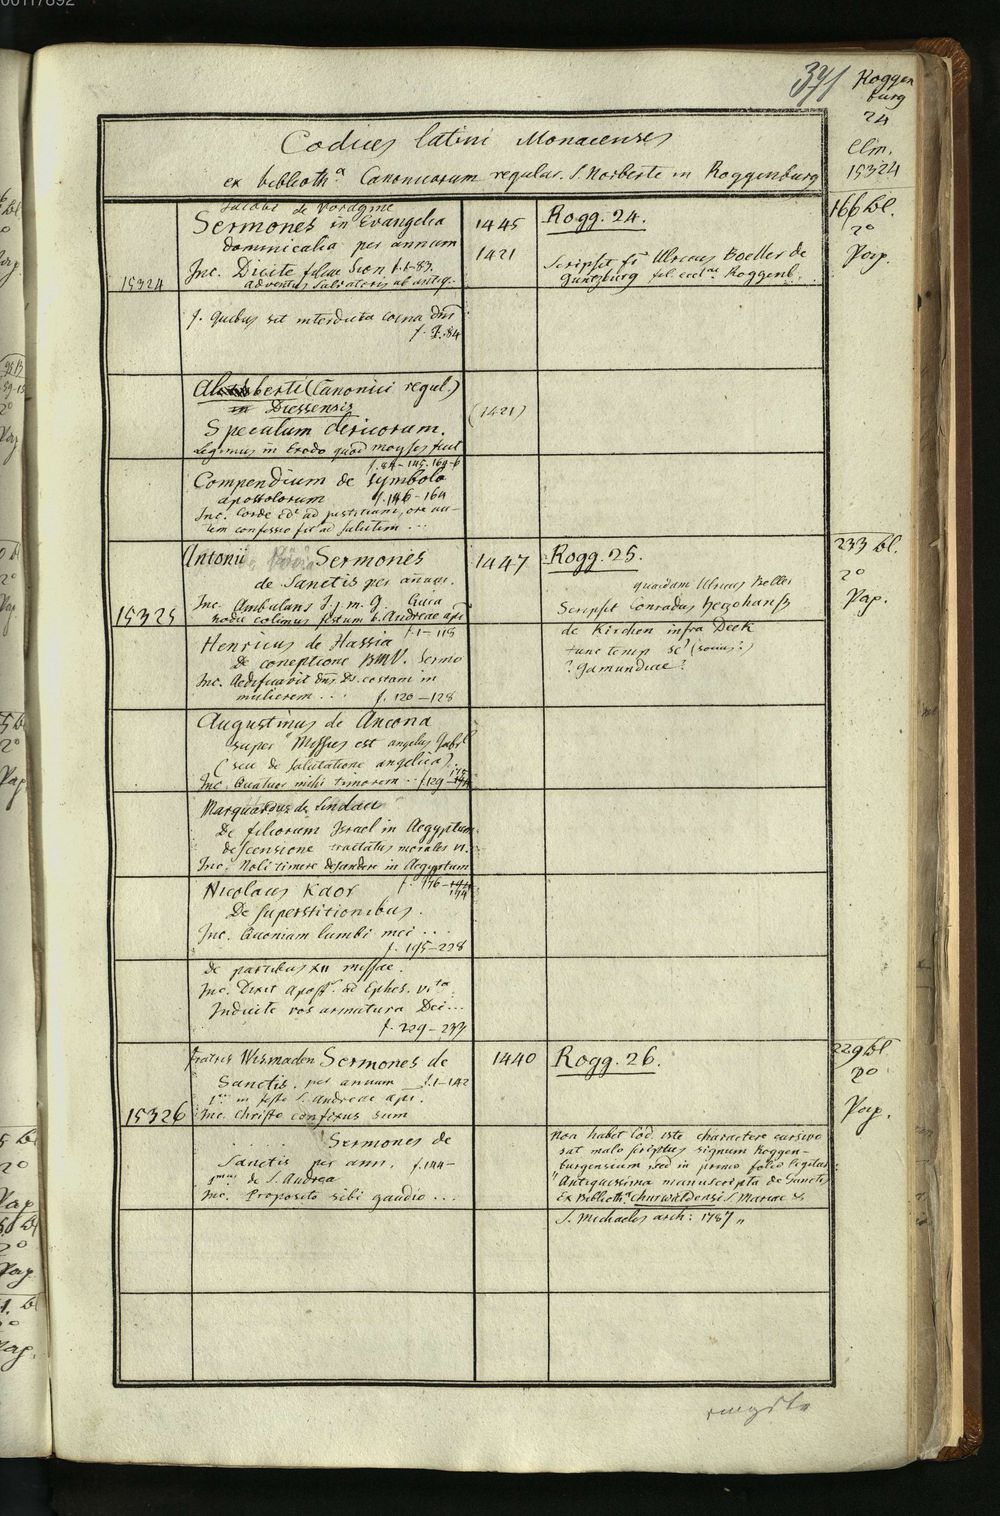 00117892
371
Roggen
burg
24
Clm.
15324
Codices latini Monacenses
ex biblioth.a Canonicorum regular. S. Norberti in Roggenburg
Jacobi de Voragine
Sermones in Evangelia
dominicalia per annum
Inc. Dicite filiae Sion f. 1-83.
adventus salvatoris ab antiq.
15324
1445
1421
Rogg. 24.
Scripsit fr Ulricus Boeller de
Guntzburg
Roggenb.
166 bl.
2o
Pap.
f. Quibus sit interdicta coena dni
f. 84
berti (Canonici regul.)
Diessensis
Speculum clericorum.
Legimus in Exodo quod moyses
f. 84-145. 164-6
(1421)
Compendium de symbolo
apostolorum f. 146-164
Inc. Corde ad justitiam, ore au-
tem confessio fit ad salutem ...
Antonii Sermones
de Sanctis per annum.
Inc. Ambulans J. j. m. g.
hodie colimus festum b. Andreae apti
f. 1-118
15325
1447
Rogg. 25.
quaedam Ulricus Boller
Scripsit Conradus
de Kirchen infra Deck
tunc temp (socius?)
? Gamundiae?
233 bl.
2o
Pap.
Henricus de Hassia
De conceptione BMV. Sermo
Inc. Aedificavit dns Ds. costam in
mulierem ... f. 120-128
Augustinus de Ancona
super "Missus est angelus Gabrl
(seu de salutatione angelica).
Inc. Quatuor mihi timorem .. f. 129-175
Marquardus de Lindau
De filiorum Israel in Aegyptum
descensione tractatus morales VI.
Inc. Noli timere descendere in Aegyptum
f. 176-194
Nicolaus
De superstitionibus.
Inc. Quoniam lumbi mei ...
f. 195-228
de partibus XII missae.
Inc. Dicit Apost. ad Ephes. vi.to
Induite vos armatura Dei...
f. 229-233
Fratris Wismaden Sermones de
Sanctis. per annum f. 1-142
in festo S. Andreae apti.
Inc. Christo confixus sum
15326
1440
Rogg. 26.
229 bl.
2o
Pap.
Sermones de
Sanctis per ann. f. 144-
de S. Andrea
Inc. Proposito sibi gaudio ...
Non habet Cod. iste charactere cursivo
sat malo scriptus signum Roggen-
burgensium sed in primo folio legitur:
"Antiquissima manuscripta de Sanctis
Ex Biblioth.a Churwaldensi S. Mariae &
S. Michaelis arch: 1787"